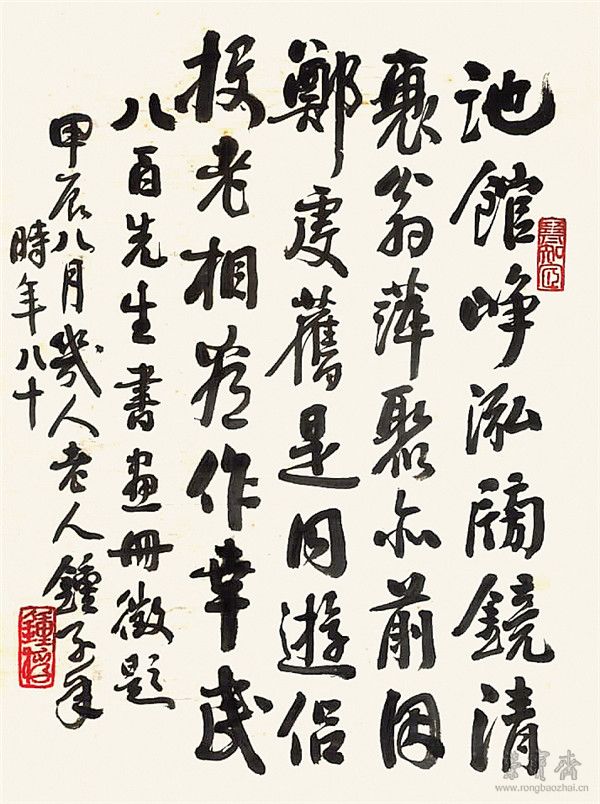 池館崢泓牖鏡清
衰翁萍聚亦前因
鄭虔舊是同遊侶
投老相看作幸民
八百先生書畫冊徵題
甲辰八月幾人老人鍾子年
時年八十
榮寶齋
www.rongbaozhai.cn